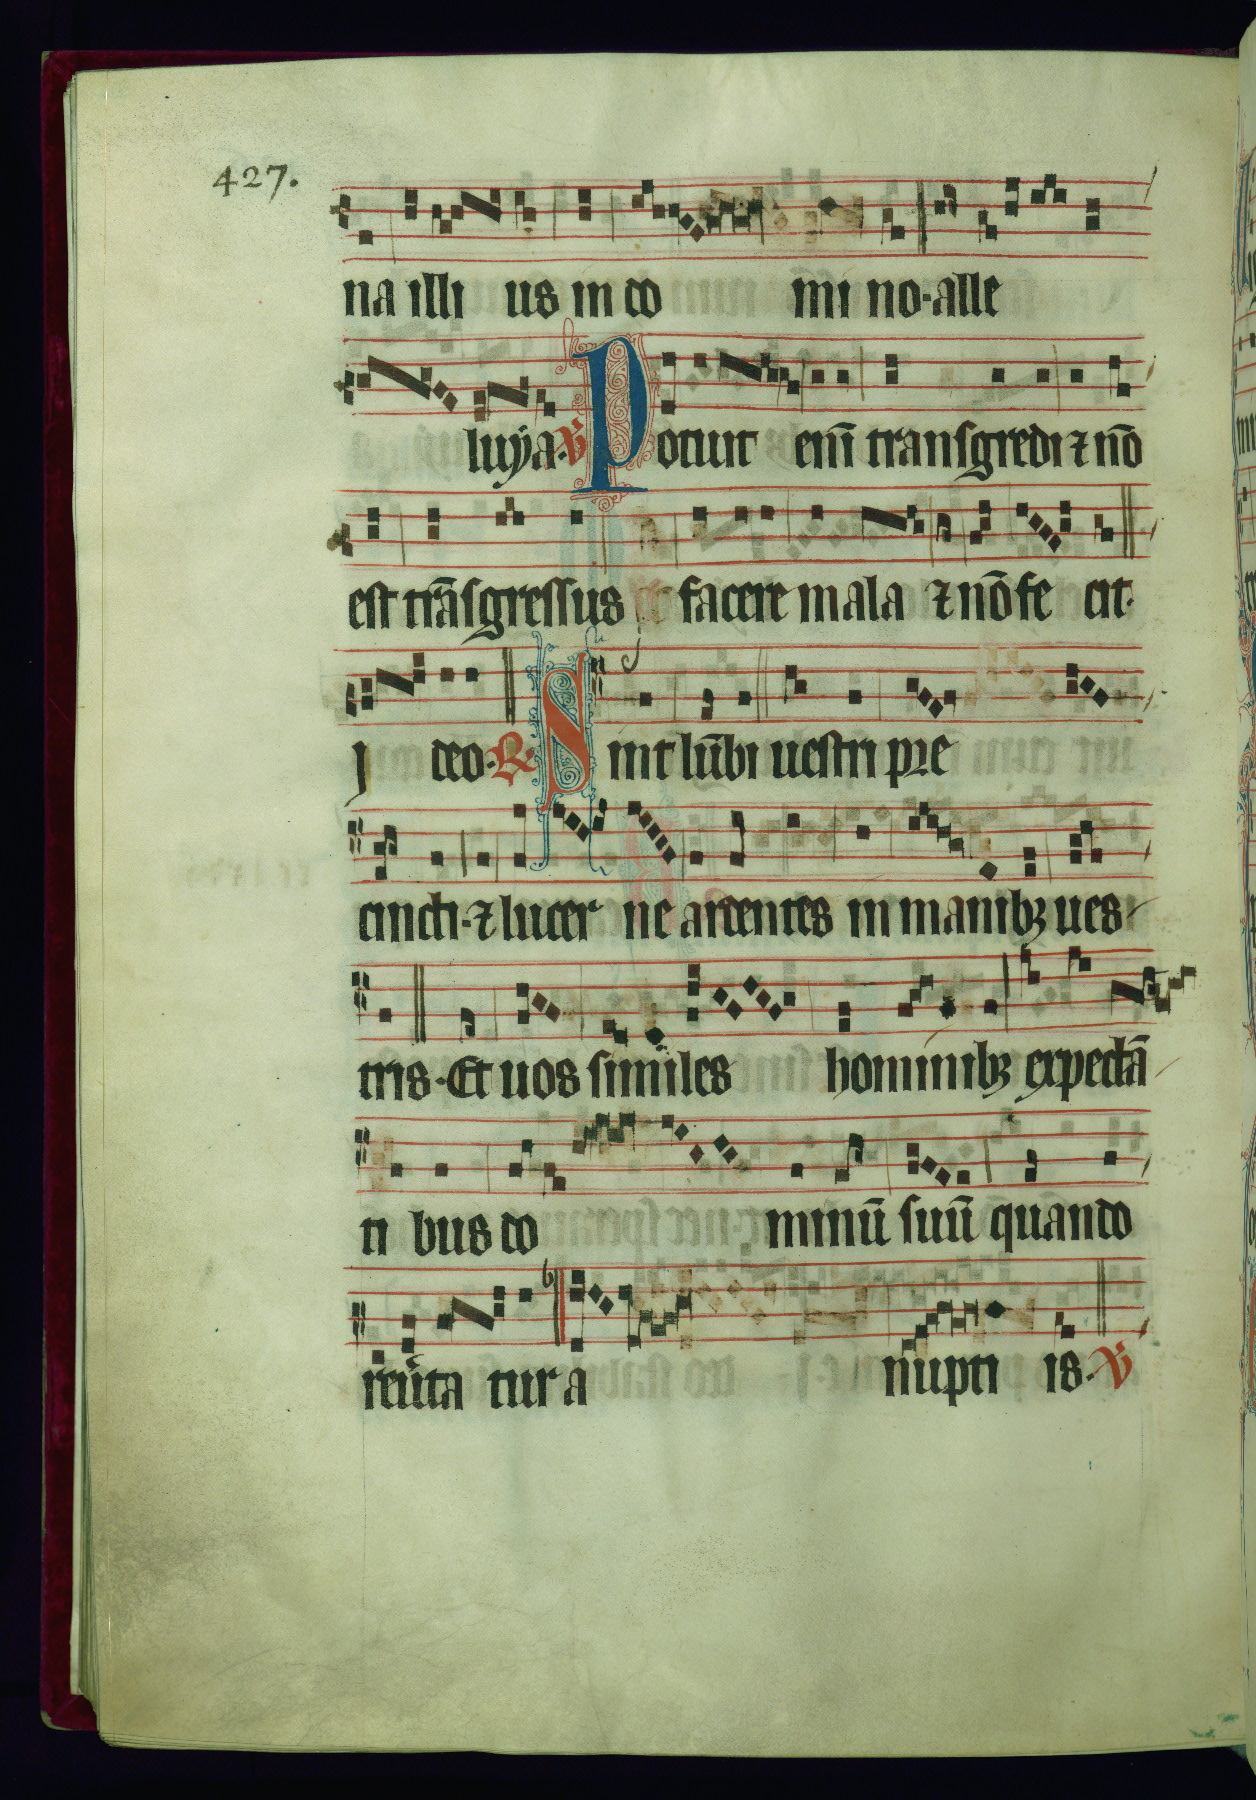 427.
na illi us in do mi no·alle
luÿa·℣ Potuit em̄ transgredi ⁊ nō
est trāsgressus facere mala ⁊ nō fe cit·
I deo·℟ Sint lūbi uestri pre
cincti·⁊ lucer ne ardentes in manibꝫ ues
tris·Et uos similes hominibꝫ expectā
ti bus do minū suū quando
reũta tur a nupti is·℣